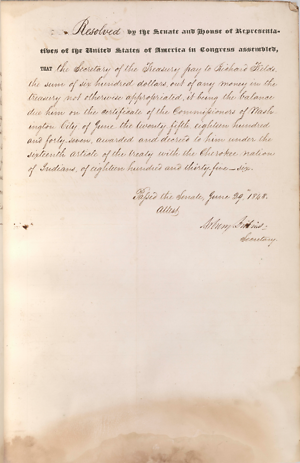 Resolved by the Senate and House of Representa-
tives of the United States of America in Congress assembled,
THAT the Secretary of the Treasury pay to Richard Fields
the sum of six hundred dollars out of any money in the
treasury not otherwise appropriated, it being the balance
due him on the certificate of the Commissioners of Wash-
ington City of June the twenty fifth eighteen hundred
and forty-seven, awarded and decreed to him under the
sixteenth article of the treaty with the Cherokee nation
of Indians, of eighteen hundred and thirty five-six.
Passed the Senate, June 29, 1848.
Attest,
Asbury Dickins,
Secretary.